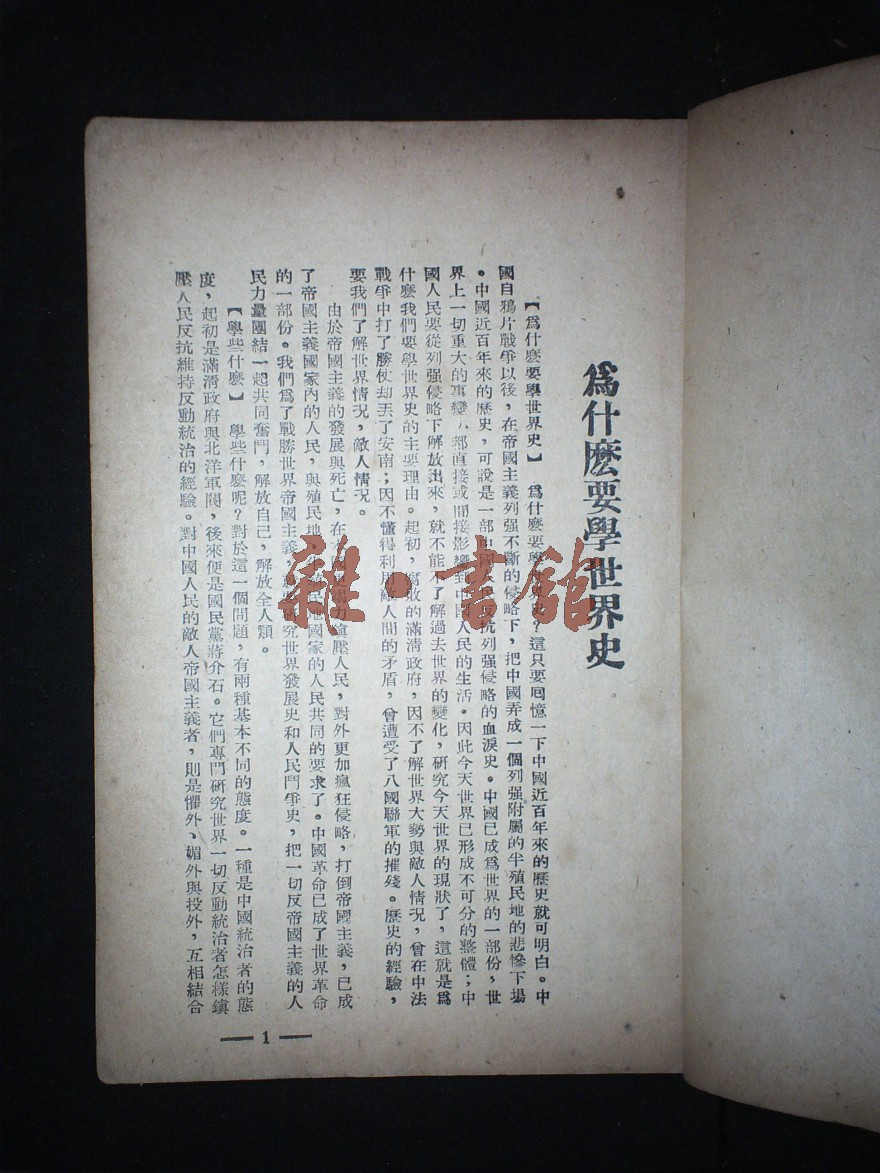 爲什麽要學世界史
【爲什麽要學世界史】 爲什麽要學世界史？這只要囘憶一下中國近百年來的歷史就可明白。中
國自鴉片戰爭以後，在帝國主義列强不斷的侵略下，把中國弄成一個列强附屬的半殖民地的悲慘下場
。中國近百年來的歷史，可說是一部中國人民反抗列强侵略的血淚史。中國已成爲世界的一部份，世
界上一切重大的事變，都直接或間接影響到中國人民的生活。因此今天世界已形成不可分的整體；中
國人民要從列强侵略下解放出來，就不能不了解過去世界的變化，研究今天世界的現狀了，這就是爲
什麽我們要學世界史的主要理由。起初，腐敗的滿清政府，因不了解世界大勢與敵人情況，曾在中法
戰爭中打了勝仗却丟了安南；因不懂得利用敵人間的矛盾，曾遭受了八國聯軍的摧殘。歷史的經驗，
要我們了解世界情況，敵人情况。
由於帝國主義的發展與死亡，在力鎭壓人民，對外更加瘋狂侵略，打倒帝國主義，已成
了帝國主義國家內的人民，與殖民地、半殖民地國家的人民共同的要求了。中國革命已成了世界革命
的一部份。我們爲了戰勝世界帝國主義，研究世界發展史和人民鬥爭史，把一切反帝國主義的人
民力量團結一起共同奮鬥，解放自己，解放全人類。
【學些什麽】 學些什麽呢？對於這一個問題，有兩種基本不同的態度。一種是中國統治者的態
度，起初是滿清政府與北洋軍閥，後來便是國民黨蔣介石。它們專門研究世界一切反動統治者怎樣鎭
壓人民反抗維持反動統治的經驗。對中國人民的敵人帝國主義者，則是懼外、媚外與投外，互相結合
— 1 —
雜·書館